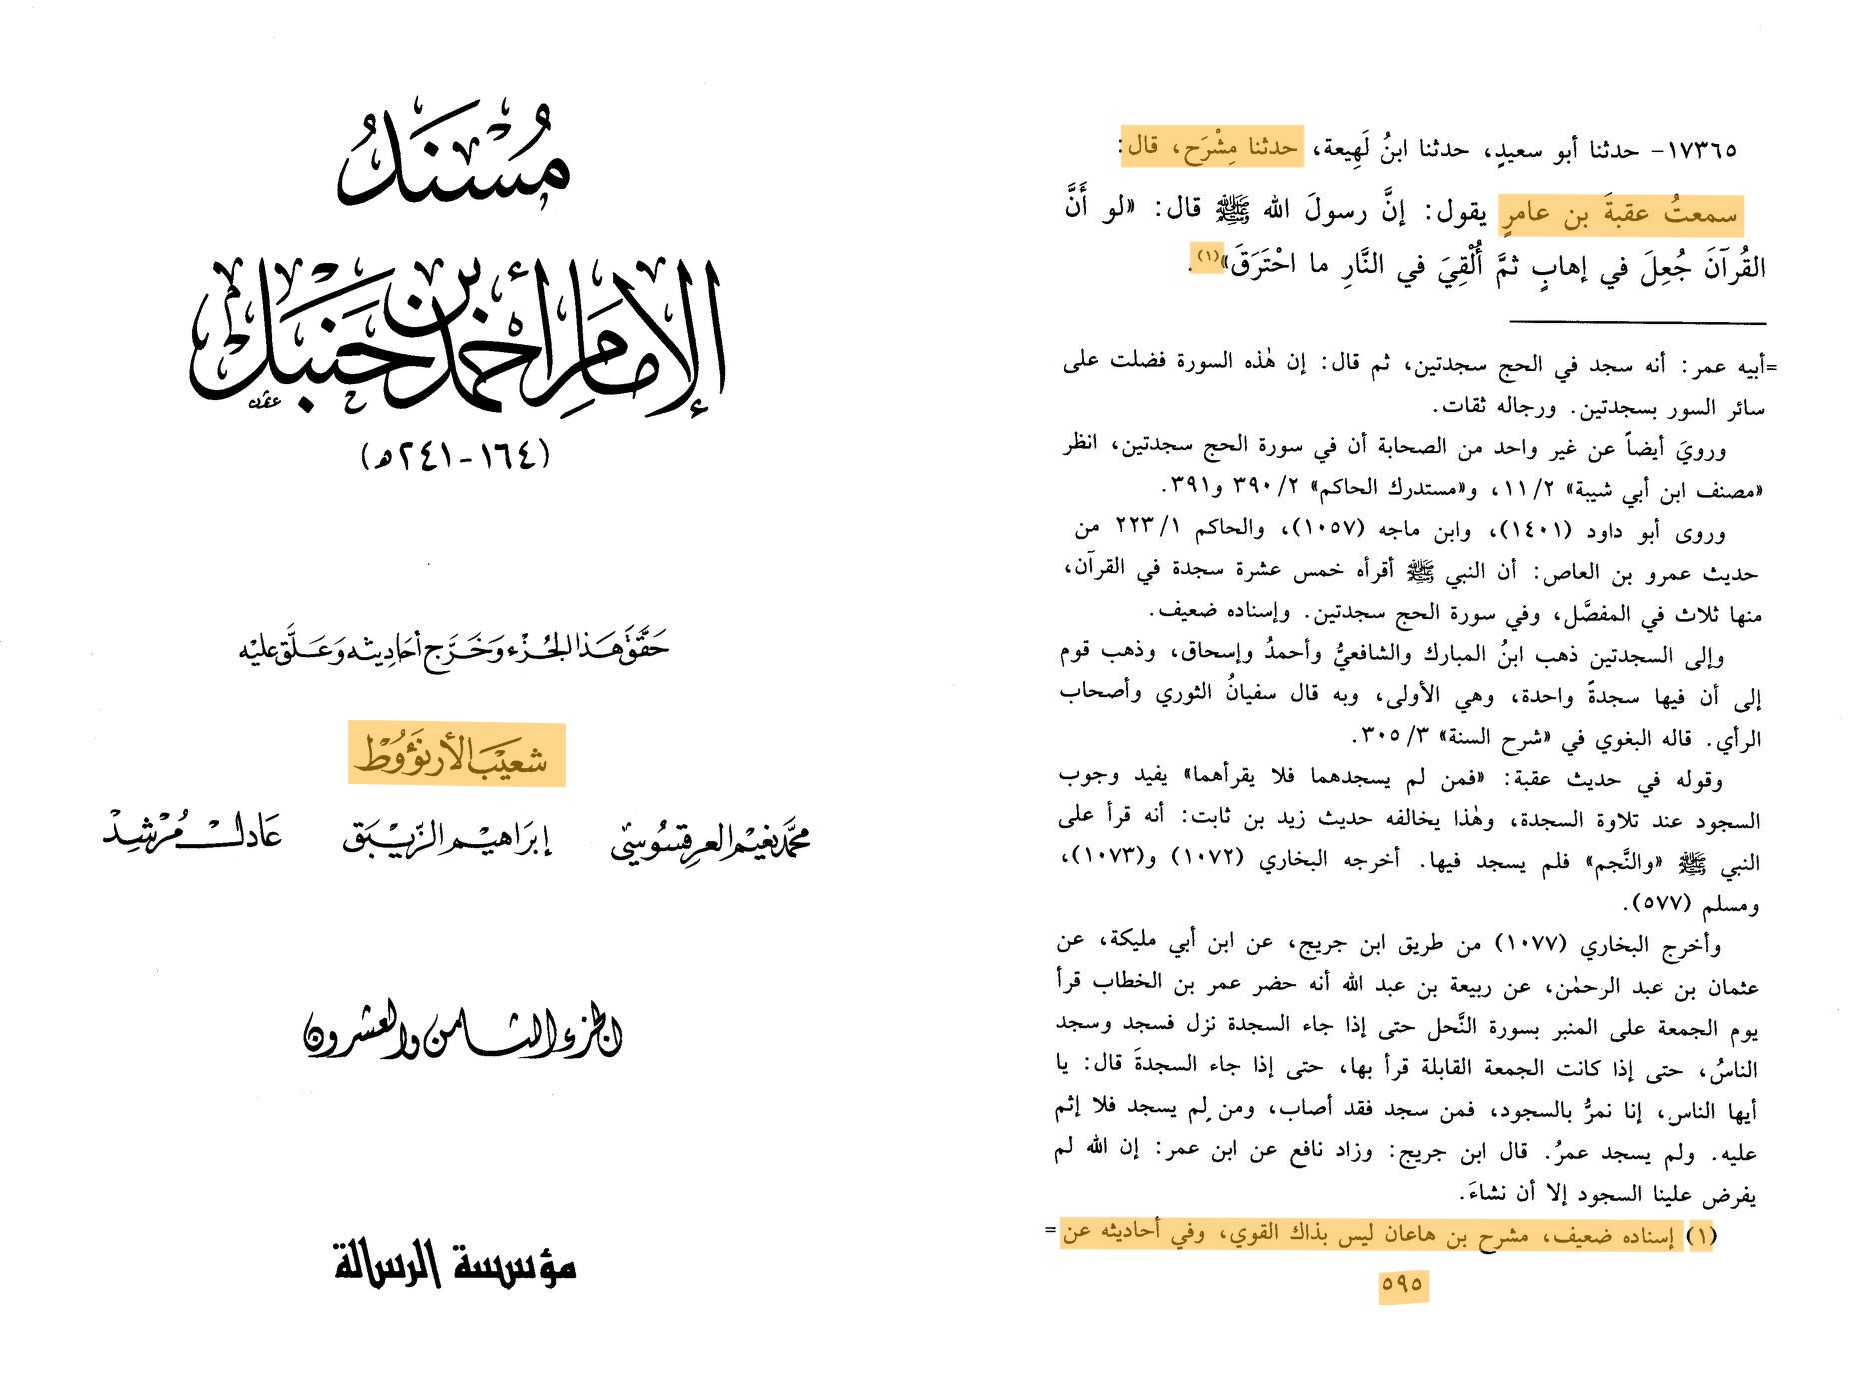 مُسْنَدُ
الإمَامِ أحمَد بن حَنبَل
(١٦٤-٢٤١هـ)
حَقَّقَ هَذا الجُزْء وَخَرَّج أحَادِيثه وَعَلَّق عليْه
شعَيْب الأرنؤوُط
محمَّد نعيْم العرقسُوسيْ إبرَاهيْم الزّيبَق عَادل مُرشِدْ
الجزء الثامن والعشرون
مؤسسة الرسالة
١٧٣٦٥- حدثنا أبو سعيدٍ، حدثنا ابنُ لَهِيعة، حدثنا مِشْرَح، قال:
سمعتُ عقبةَ بن عامرٍ يقول: إنَّ رسولَ الله ﷺ قال: «لو أَنَّ
القُرآنَ جُعِلَ في إهابٍ ثمَّ أُلْقِيَ في النَّارِ ما احْتَرَقَ»(١).
=أبيه عمر: أنه سجد في الحج سجدتين، ثم قال: إن هٰذه السورة فضلت على
سائر السور بسجدتين. ورجاله ثقات.
ورويَ أيضاً عن غير واحد من الصحابة أن في سورة الحج سجدتين، انظر
«مصنف ابن أبي شيبة» ١١/٢، و«مستدرك الحاكم» ٣٩٠/٢ و٣٩١.
وروى أبو داود (١٤٠١)، وابن ماجه (١٠٥٧)، والحاكم ٢٢٣/١ من
حديث عمرو بن العاص: أن النبي ﷺ أقرأه خمس عشرة سجدة في القرآن،
منها ثلاث في المفصَّل، وفي سورة الحج سجدتين. وإسناده ضعيف.
وإلى السجدتين ذهب ابنُ المبارك والشافعيُّ وأحمدُ وإسحاق، وذهب قوم
إلى أن فيها سجدةً واحدة، وهي الأولى، وبه قال سفيانُ الثوري وأصحاب
الرأي. قاله البغوي في «شرح السنة» ٣٠٥/٣.
وقوله في حديث عقبة: «فمن لم يسجدهما فلا يقرأهما» يفيد وجوب
السجود عند تلاوة السجدة، وهٰذا يخالفه حديث زيد بن ثابت: أنه قرأ على
النبي ﷺ «والنَّجم» فلم يسجد فيها. أخرجه البخاري (١٠٧٢) و(١٠٧٣)،
ومسلم (٥٧٧).
وأخرج البخاري (١٠٧٧) من طريق ابن جريج، عن ابن أبي مليكة، عن
عثمان بن عبد الرحمٰن، عن ربيعة بن عبد الله أنه حضر عمر بن الخطاب قرأ
يوم الجمعة على المنبر بسورة النَّحل حتى إذا جاء السجدة نزل فسجد وسجد
الناسُ، حتى إذا كانت الجمعة القابلة قرأ بها، حتى إذا جاء السجدةَ قال: يا
أيها الناس، إنا نمرُّ بالسجود، فمن سجد فقد أصاب، ومن لم يسجد فلا إثم
عليه. ولم يسجد عمرُ. قال ابن جريج: وزاد نافع عن ابن عمر: إن الله لم
يفرض علينا السجود إلا أن نشاءَ.
(١) إسناده ضعيف، مشرح بن هاعان ليس بذاك القوي، وفي أحاديثه عن=
٥٩٥